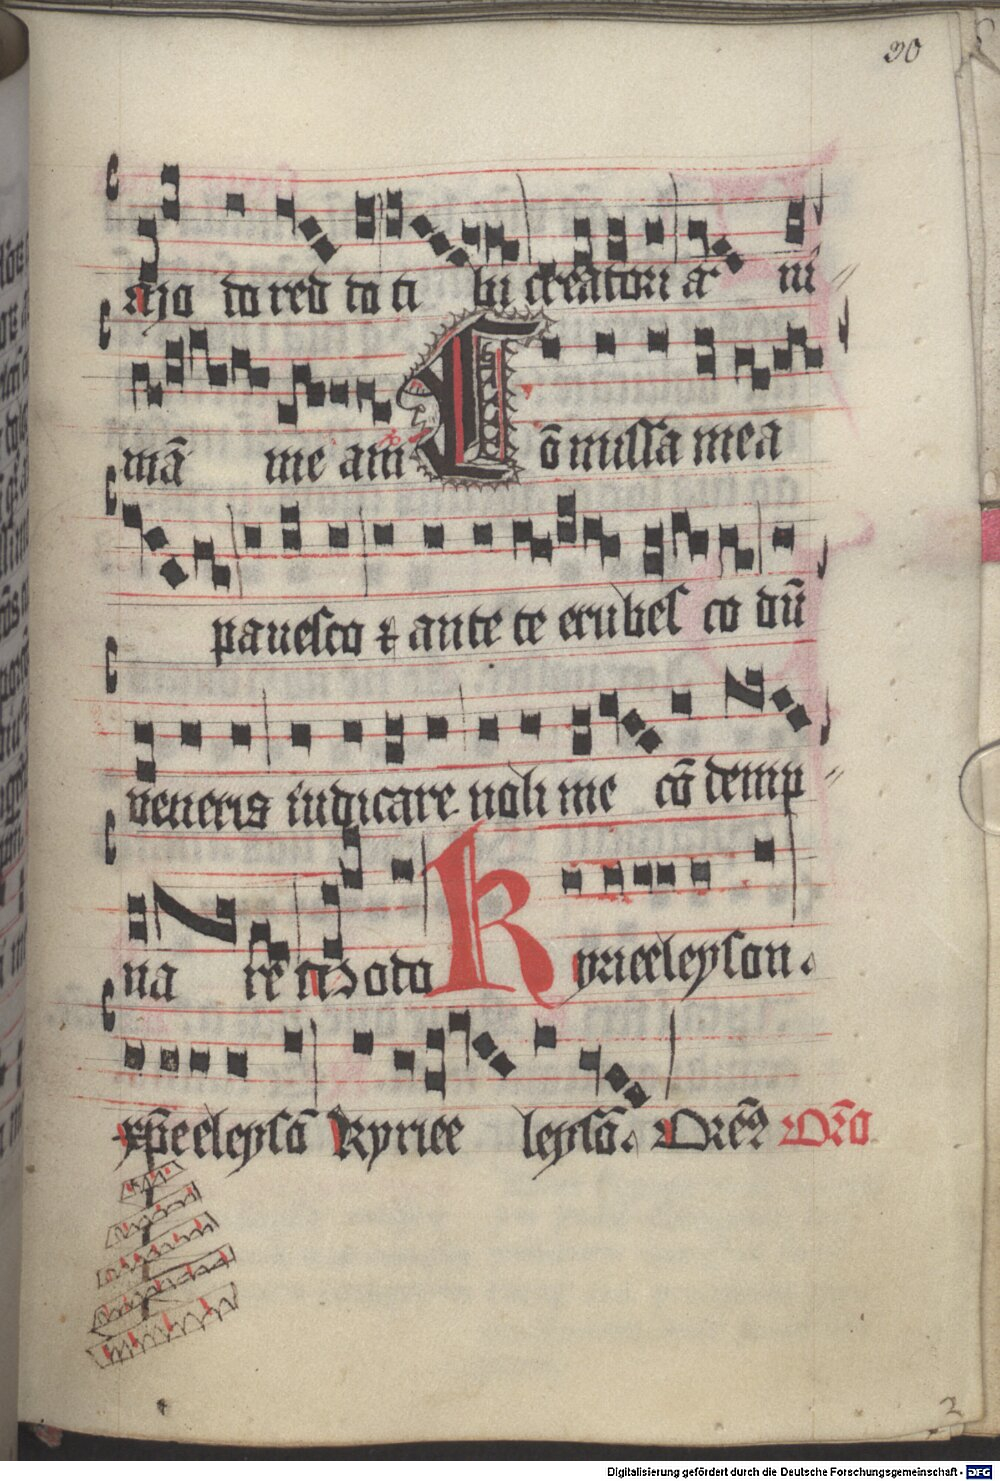 30
ayo do red do ti bi creatori aͣ ni
mā me am Cō missa mea
pauesco ⁊ ante te erubes co dū
veneris iudicare noli me cō demp
na re ti Dodo Kyrieeleyson.
xp̄eeleysō Kyriee leysō. Orēꝰ Orō
2
Digitalisierung gefördert durch die Deutsche Forschungsgemeinschaft - DFG